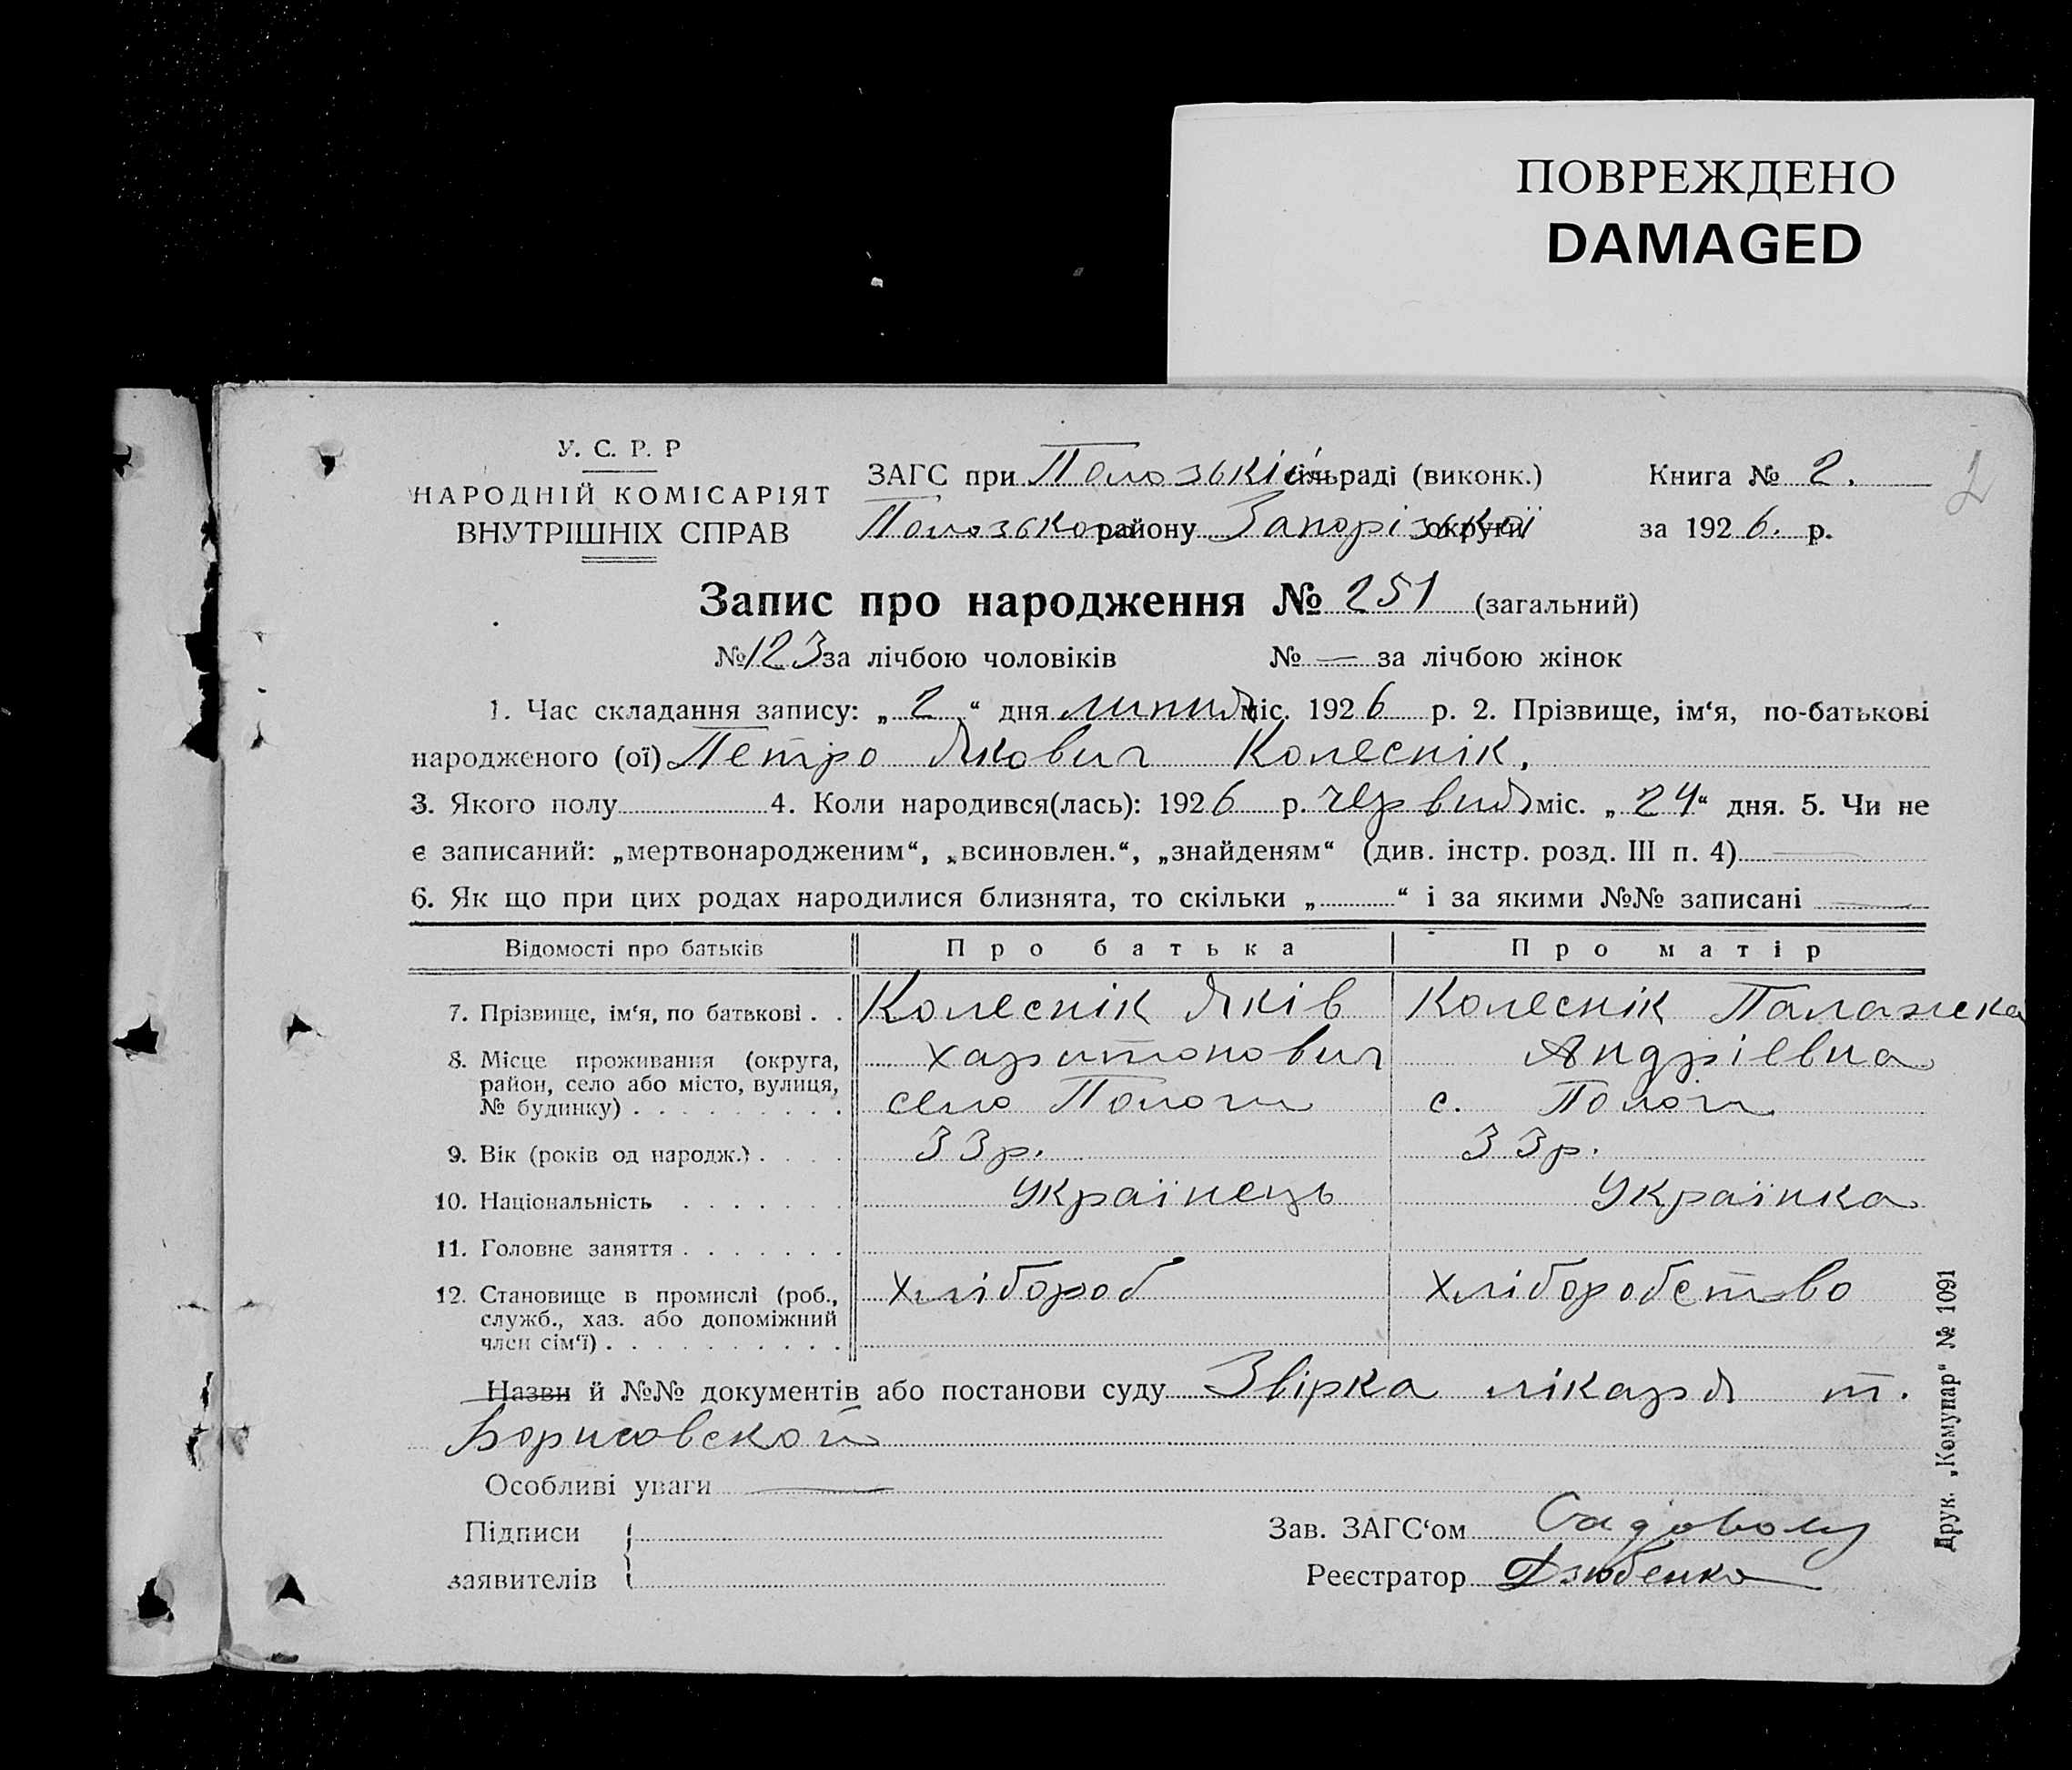 ПОВРЕЖДЕНО
DAMAGED
У. С. Р. Р
НАРОДНІЙ КОМІСАРІЯТ
ВНУТРІШНІХ СПРАВ
ЗАГС при Полозькій сільраді (виконк.)
Полозького району Запорізької округи
Книга № 2.
за 1926. р.
2
Запис про народження № 251 (загальний)
№ 123 за лічбою чоловіків № — за лічбою жінок
1. Час складання запису: „2“ дня липня міс. 1926 р. 2. Прізвище, ім‘я, по-батькові
народженого (ої) Петро Якович Колеснік.
3. Якого полу 4. Коли народився(лась): 1926 р. червня міс. „24“ дня. 5. Чи не
є записаний: „мертвонародженим“, „всиновлен.“, „знайденям“ (див. інстр. розд. III п. 4) —
6. Як що при цих родах народилися близнята, то скільки „ “ і за якими №№ записані —
Відомості про батьків Про батька Про матір
7. Прізвище, ім‘я, по батькові . . Колеснік Яків Колеснік Палажка
Харитонович Андріевна
8. Місце проживання (округа,
район, село або місто, вулиця,
№ будинку) . . . . . . . . . село Пологи с. Пологи
9. Вік (років од народж.) . . . . 33р. 33р.
10. Національність . . . . . . . Українець Українка
11. Головне заняття . . . . . . .
12. Становище в промислі (роб., Хлібороб Хліборобство
служб., хаз. або допоміжний
член сім‘ї) . . . . . . . . . .
Назви й №№ документів або постанови суду Звірка лікаря т.
Борисовской
Особливі уваги —
Підписи
заявителів
Зав. ЗАГС‘ом
Реєстратор Дзюбенко
Друк. „Комунар“ № 1091